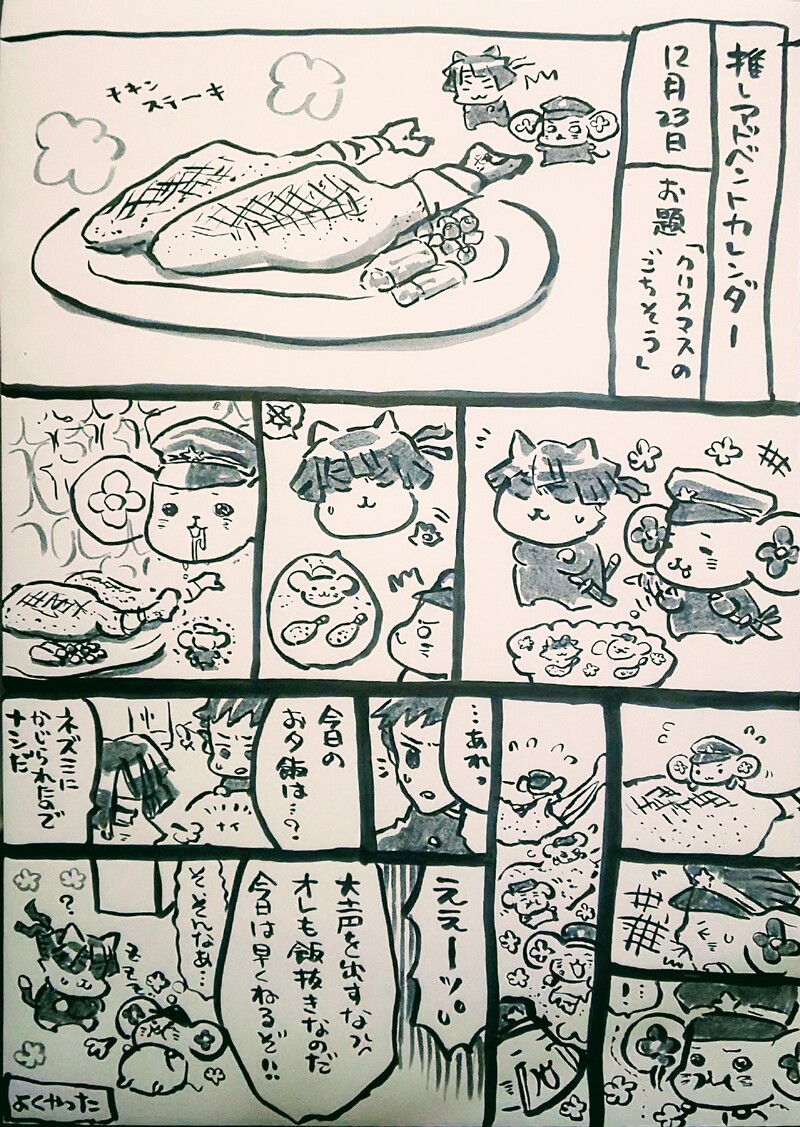 推しアドベントカレンダー
12月23日
お題
「クリスマスの
ごちそう」
チキン
ステーキ
…あれっ
今日の
お夕飯は…?
ネズミに
かじられたので
ナシだ
ええーッ!!
大声を出すな!!
オレも飯抜きなのだ
今日は早くねるぞ!!
そ、そんなぁ…
?
よくやった